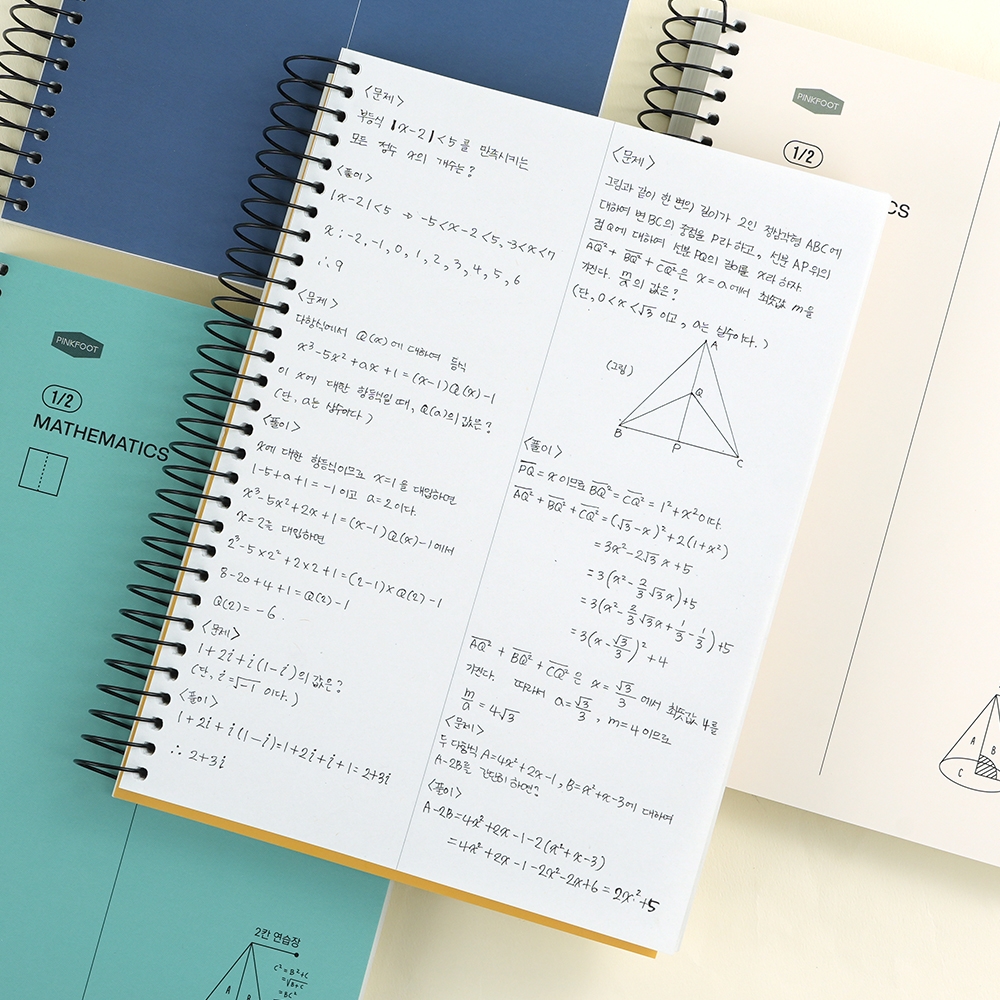 PINKFOOT
1/2
CS
A
B
C
PINKFOOT
1/2
MATHEMATICS
2칸 연습장
C²=B²+C
=√B+C
=BC²
A
B
<문제>
부등식 |x-2|<5 를 만족시키는
모든 정수 x의 개수는?
<풀이>
|x-2|<5 ⇒ -5<x-2<5, -3<x<7
x : -2, -1, 0, 1, 2, 3, 4, 5, 6
∴ 9
<문제>
다항식에서 Q(x)에 대하여 등식
x³-5x²+ax+1=(x-1)Q(x)-1
이 x에 대한 항등식일 때, Q(a)의 값은?
(단, a는 상수이다)
<풀이>
x에 대한 항등식이므로 x=1을 대입하면
1-5+a+1=-1이고 a=2이다.
x³-5x²+2x+1=(x-1)Q(x)-1에서
x=2를 대입하면
2³-5×2²+2×2+1=(2-1)×Q(2)-1
8-20+4+1=Q(2)-1
Q(2)=-6.
<문제>
1+2i+i(1-i)의 값은?
(단, i=√-1 이다.)
<풀이>
1+2i+i(1-i)=1+2i+i+1=2+3i
∴ 2+3i
<문제>
그림과 같이 한 변의 길이가 2인 정삼각형 ABC에
대하여 변 BC의 중점을 P라 하고, 선분 AP위의
점 Q에 대하여 선분 PQ의 길이를 x라 하자.
A̅Q̅²+B̅Q̅²+C̅Q̅²은 x=a에서 최솟값 m을
가진다. m/a의 값은?
(단, 0<x<√3 이고, a는 실수이다.)
(그림)
A
Q
B
P
C
<풀이>
P̅Q̅=x이므로 B̅Q̅²=C̅Q̅²=1²+x²이다.
A̅Q̅²+B̅Q̅²+C̅Q̅²=(√3-x)²+2(1+x²)
=3x²-2√3x+5
=3(x²-2/3√3x)+5
=3(x²-2/3√3x+1/3-1/3)+5
=3(x-√3/3)²+4
A̅Q̅²+B̅Q̅²+C̅Q̅²은 x=√3/3에서 최솟값 4를
가진다. 따라서 a=√3/3, m=4이므로
m/a=4√3
<문제>
두 다항식 A=4x²+2x-1, B=x²+x-3에 대하여
A-2B를 간단히 하면?
<풀이>
A-2B=4x²+2x-1-2(x²+x-3)
=4x²+2x-1-2x²-2x+6=2x²+5